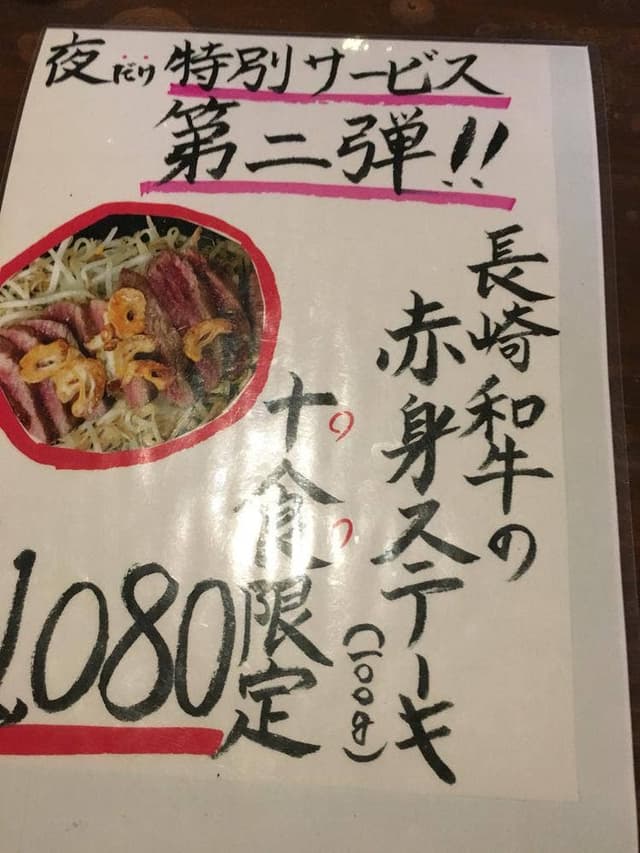 夜だけ特別サービス
第二弾!!
長崎和牛の
赤身ステーキ
(100g)
十食限定
1,080